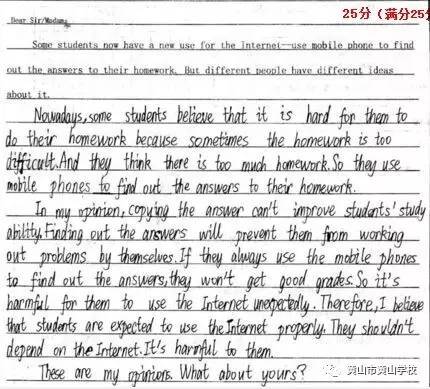 25分（满分25分
Dear Sir/Madam,
Some students now have a new use for the Internet--use mobile phone to find
out the answers to their homework. But different people have different ideas
about it.
Nowadays, some students believe that it is hard for them to
do their homework because sometimes the homework is too
difficult. And they think there is too much homework. So they use
mobile phones to find out the answers to their homework.
In my opinion, copying the answer can't improve students' study
ability. Finding out the answers will prevent them from working
out problems by themselves. If they always use the mobile phones
to find out the answers, they won't get good grades. So it's
harmful for them to use the Internet unexpectedly. Therefore, I believe
that students are expected to use the Internet properly. They shouldn't
depend on the Internet. It's harmful to them.
These are my opinions. What about yours?
黄山市黄山学校